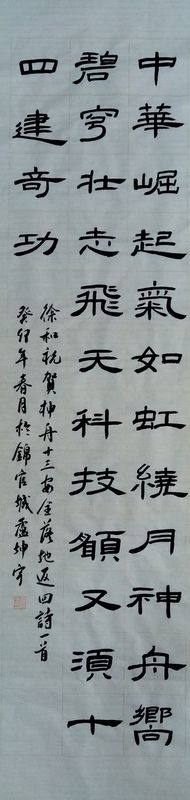 中華崛起氣如虹繞月神舟嚮
碧穹壯志飛天科技又須十
四建奇功
徐和祝賀神舟十三安全落地返回詩一首
癸卯年春月於錦官城盧坤